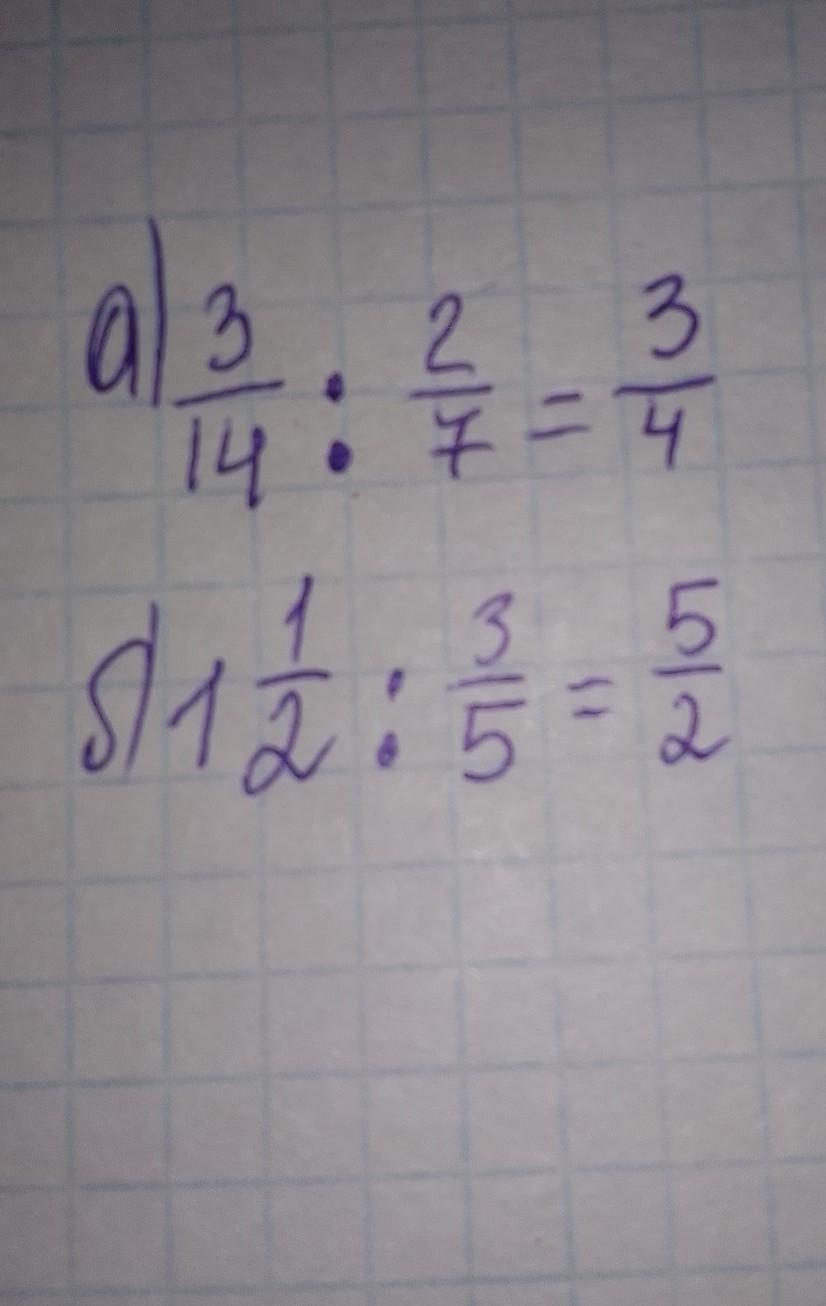 а) 3/14 : 2/7 = 3/4
б) 1 1/2 : 3/5 = 5/2